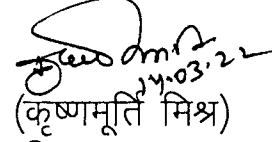 14.03.22
(कृष्णमूर्ति मिश्र)